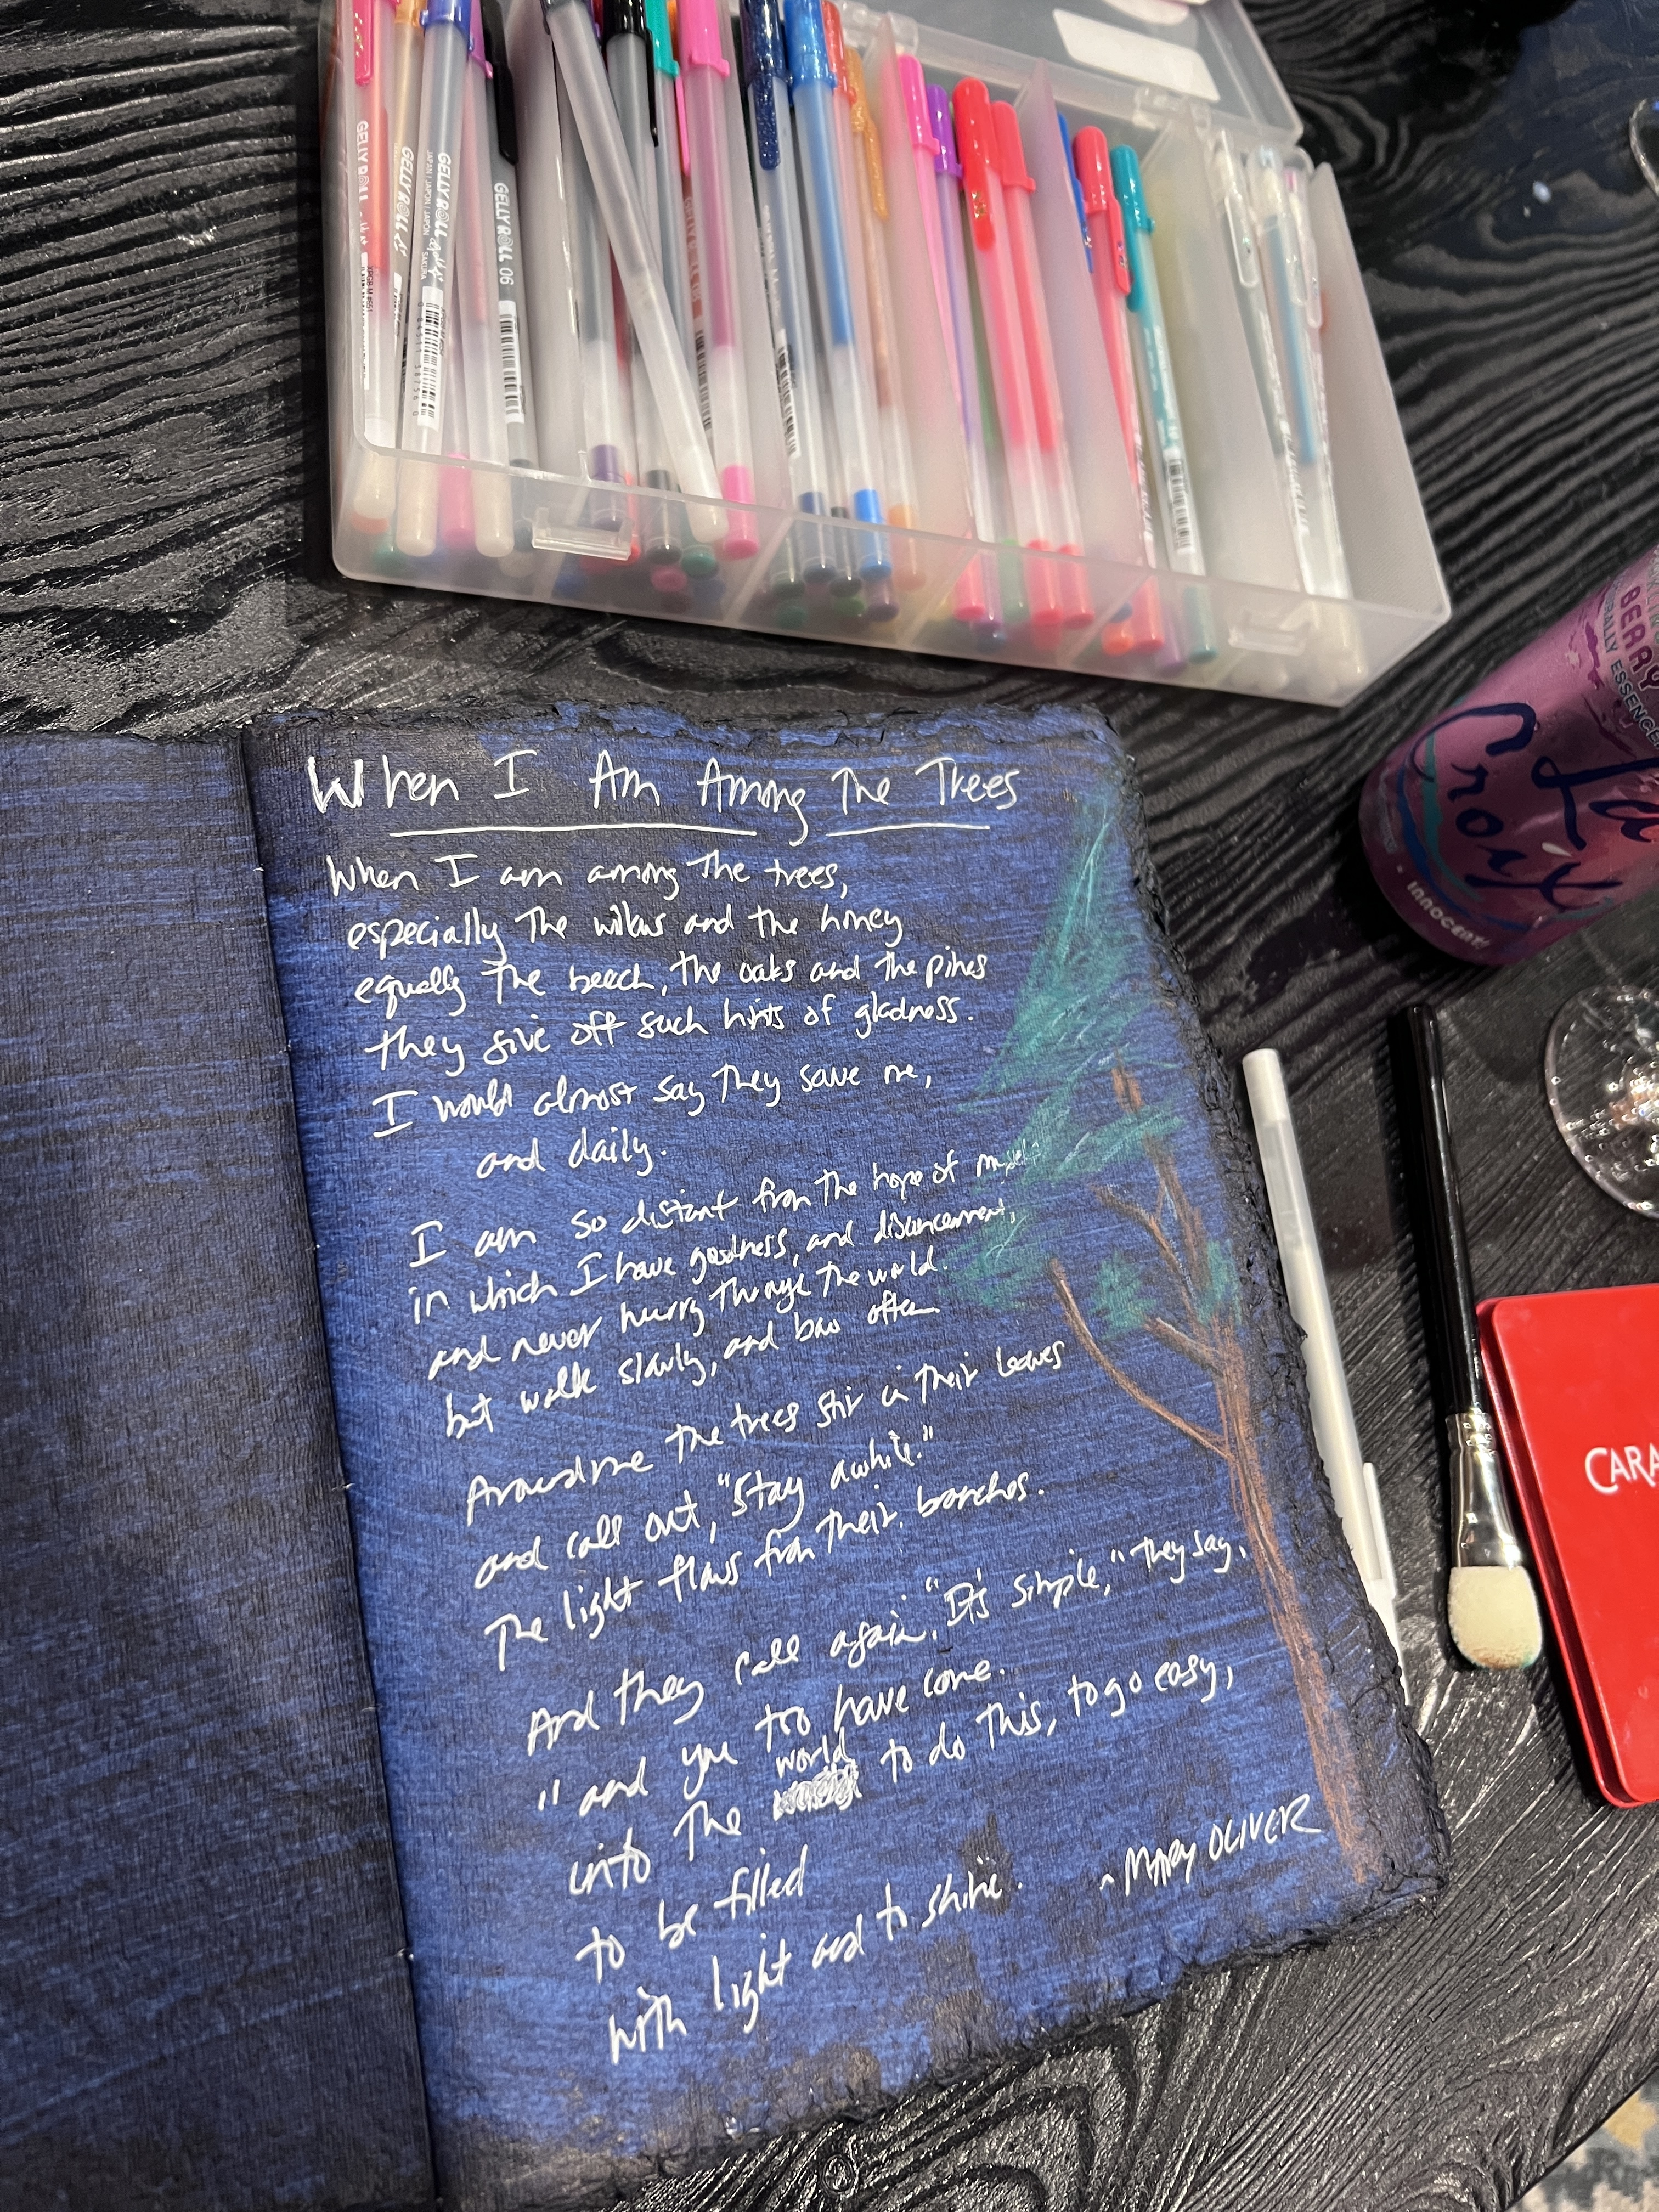 GELLY ROLL
GELLY ROLL
GELLY ROLL
JAPAN / JAPON / JAPON SAKURA
GELLY ROLL 06
BERRY
NATURALLY ESSENCED
La
Croix
INNOCENT!
CARA
When I Am Among The Trees
When I am among the trees,
especially the willows and the honey
equally the beech, the oaks and the pines
they give off such hints of gladness.
I would almost say they save me,
and daily.
I am so distant from the hope of myself
in which I have goodness, and discernment,
and never hurry through the world.
but walk slowly, and bow often.
Around me the trees stir in their leaves
and call out, "Stay awhile."
The light flows from their branches.
And they call again, "It's simple," they say,
"and you too have come.
into the world to do this, to go easy,
to be filled
with light and to shine".
~ MARY OLIVER